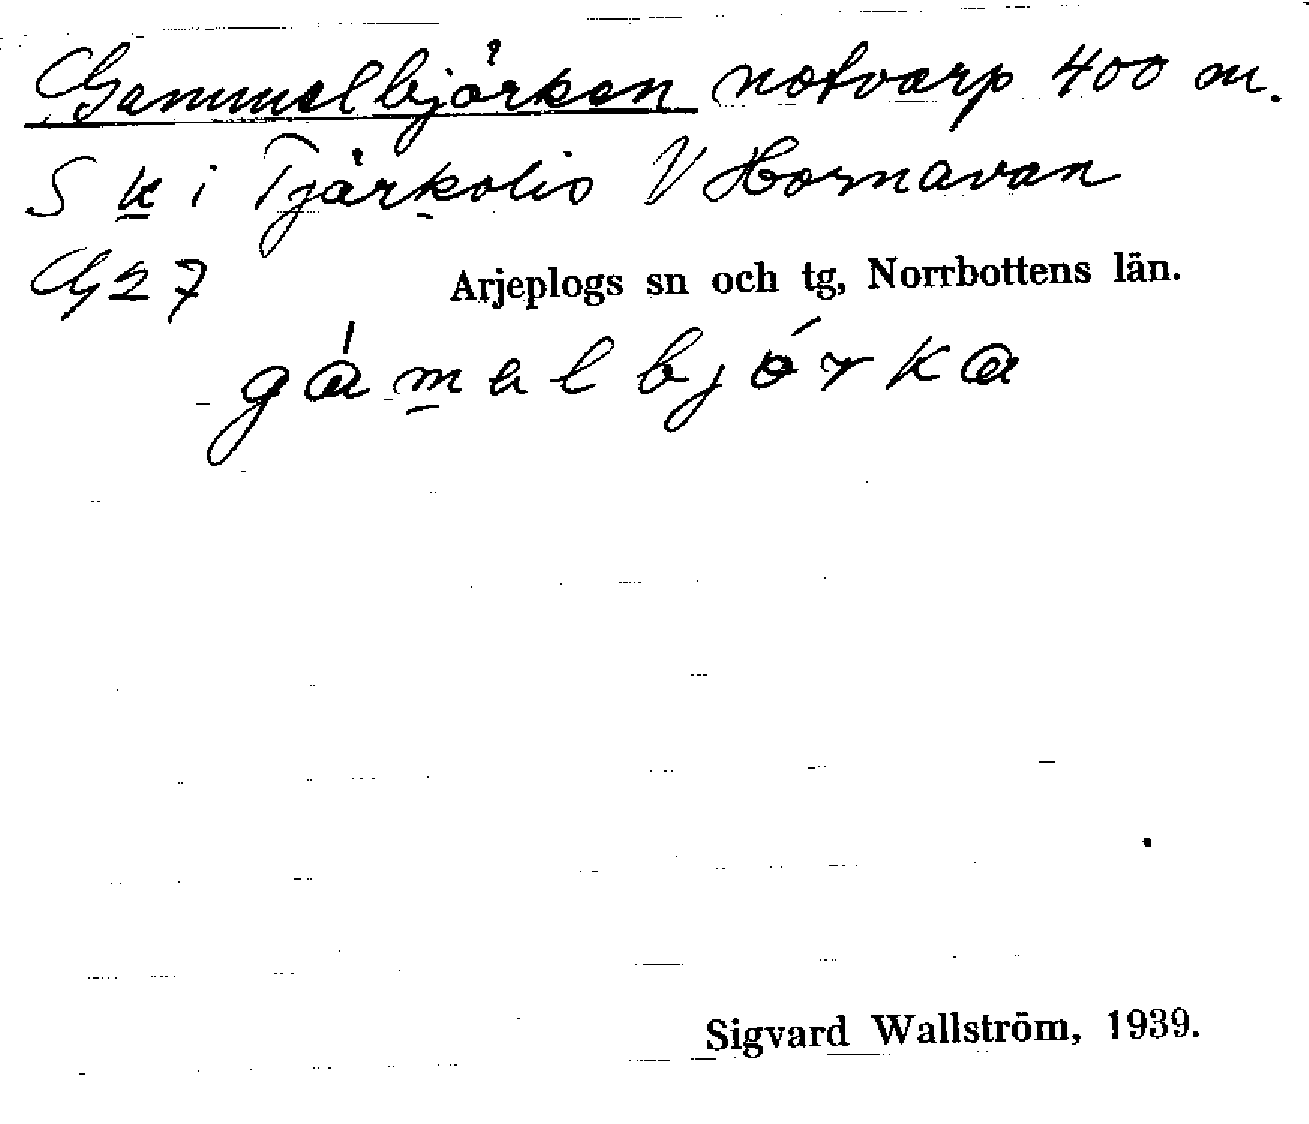 Gammelbjörken notvarp 400 m.
S k i Tjärkolis V Hornavan
G27
Arjeplogs sn och tg, Norrbottens län.
gámalbjǿrka
Sigvard Wallström, 1939.